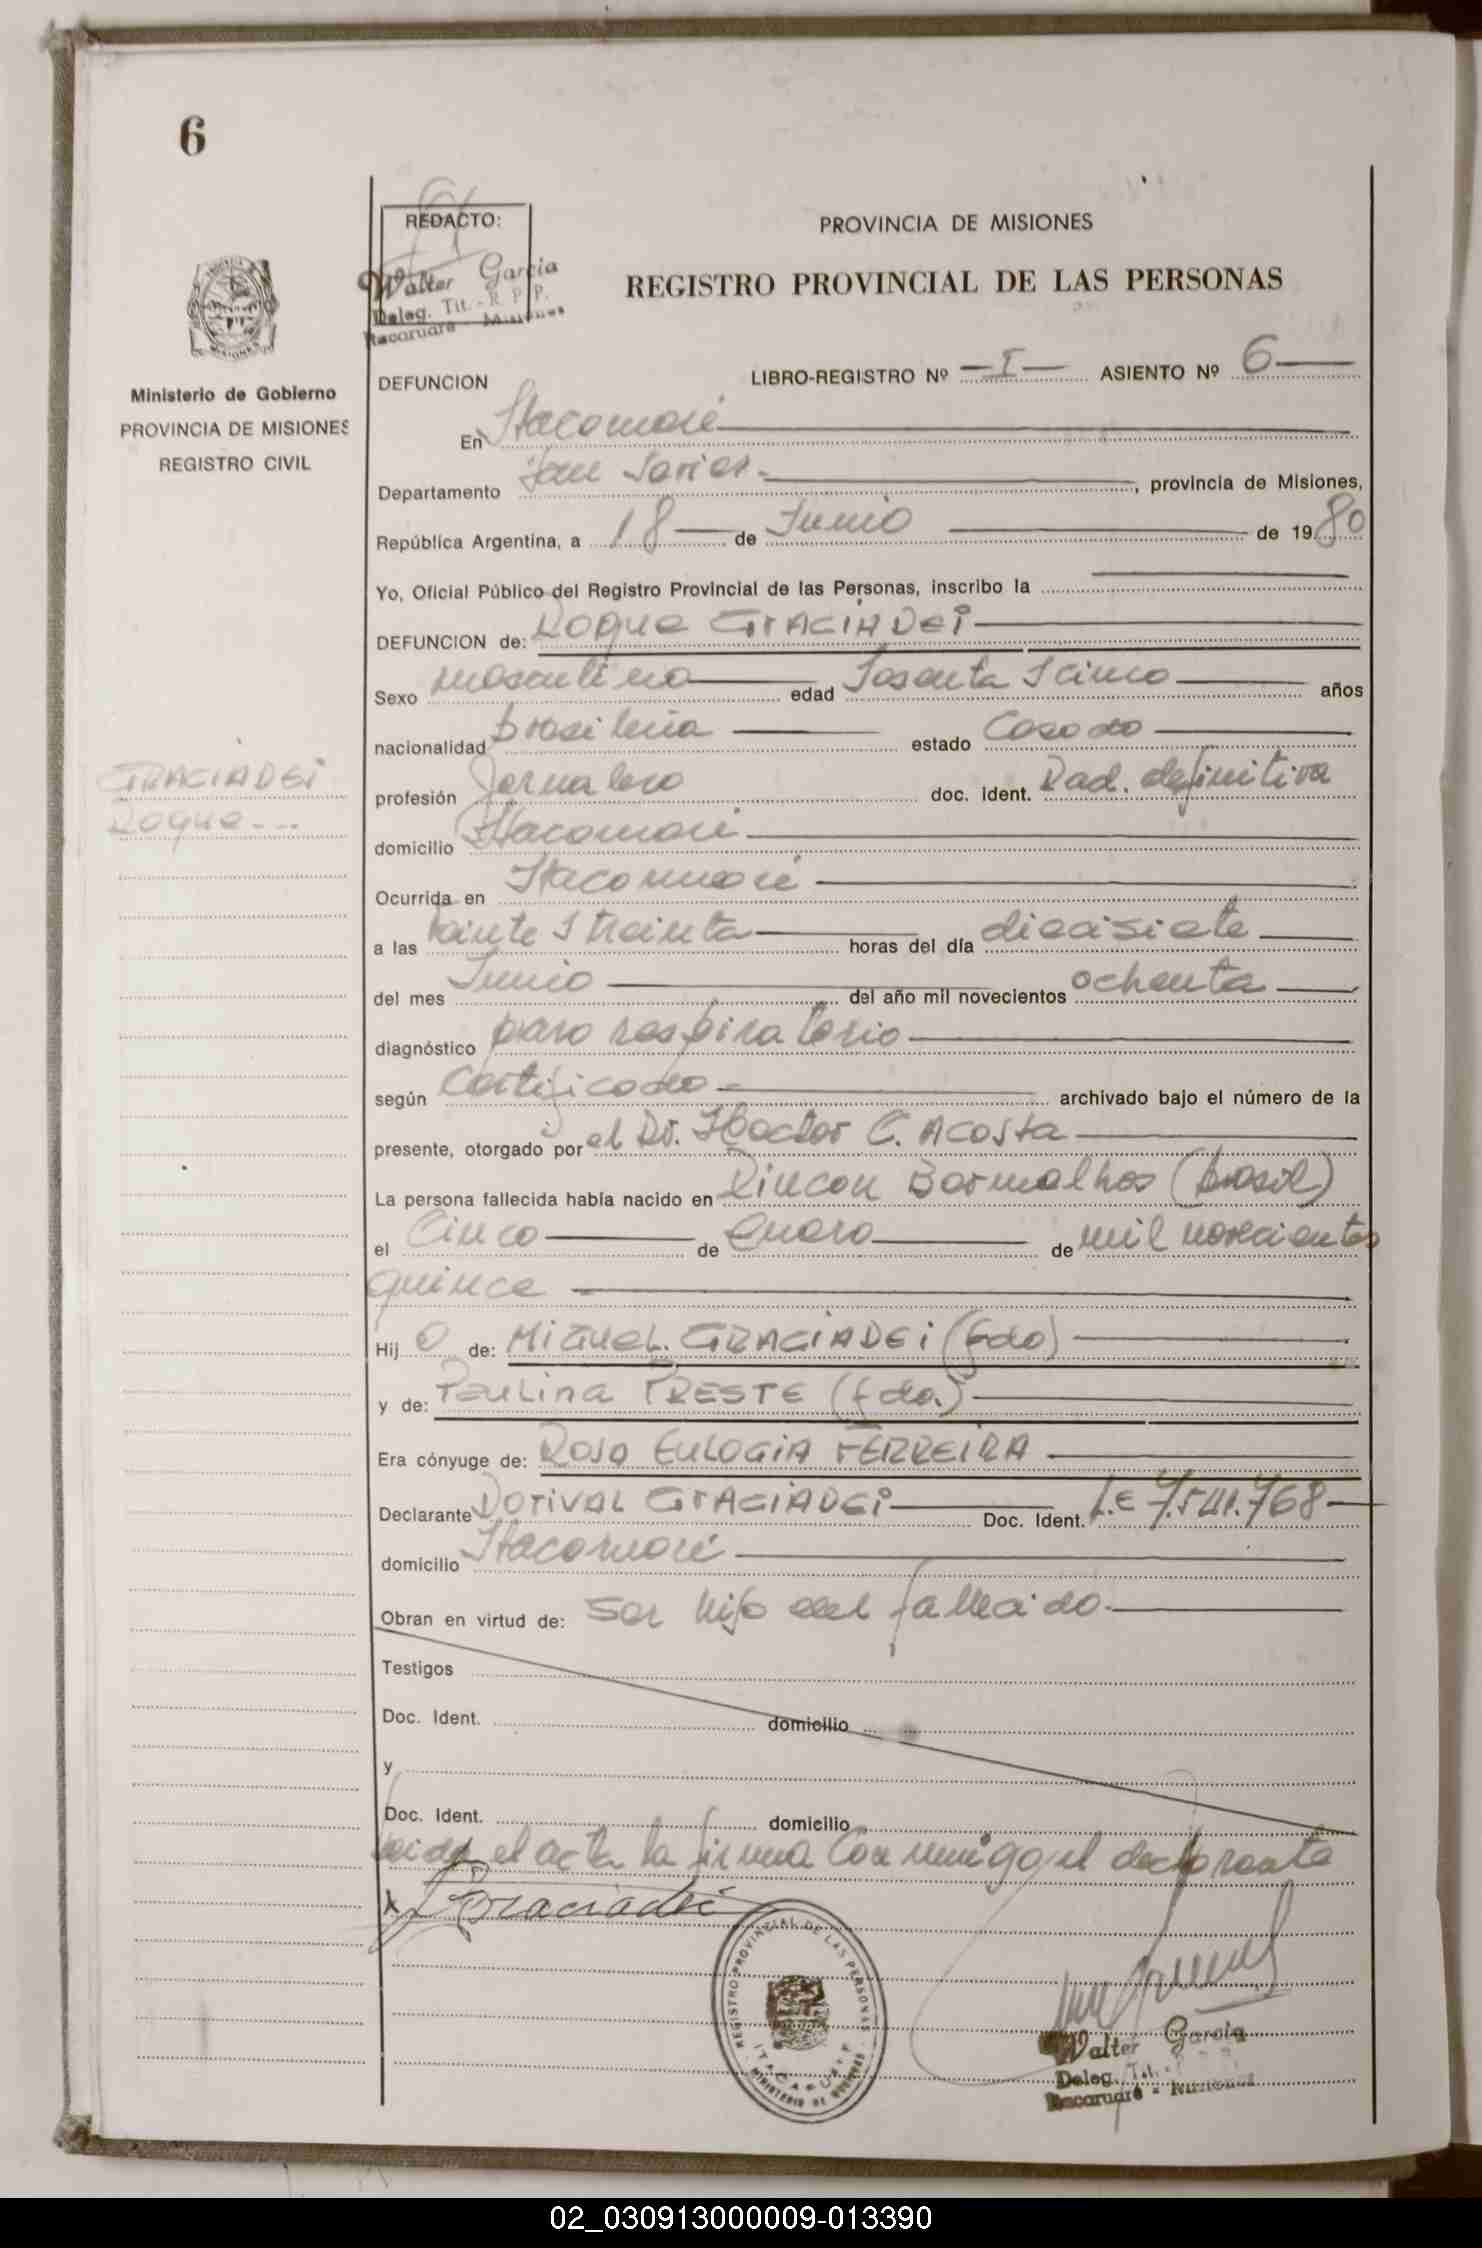 6
REDACTO:
Walter Garcia
Deleg. Tit. - R. P. P.
Itacaruaré - Misiones
PROVINCIA DE MISIONES
REGISTRO PROVINCIAL DE LAS PERSONAS
Ministerio de Gobierno
PROVINCIA DE MISIONES
REGISTRO CIVIL
DEFUNCION LIBRO-REGISTRO Nº —I— ASIENTO Nº 6
En Itacaruaré
Departamento San Javier, provincia de Misiones,
República Argentina, a 18 de Junio de 1980
Yo, Oficial Público del Registro Provincial de las Personas, inscribo la
DEFUNCION de: Roque GRACIADEI
Sexo masculino edad Sesenta I Cinco años
nacionalidad brasileria estado Casado
GRACIADEI
Roque
profesión Jornalero doc. ident. Rad. definitiva
domicilio Itacaruaré
Ocurrida en Itacaruaré
a las Veinte I treinta horas del día diecisiete
del mes Junio del año mil novecientos ochenta
diagnóstico paro respiratorio
según Certificado archivado bajo el número de la
presente, otorgado por el Dr. Hector C. ACOSTA
La persona fallecida había nacido en Rincon (brasil)
el Cinco de Enero de mil novecientos
quince
Hij o de: MIGUEL GRACIADEI (fdo)
y de: Paulina PRESTE (fda.)
Era cónyuge de: ROSA EULOGIA FERREIRA
Declarante DORIVAL GRACIADEI Doc. Ident. L.E 7.541.768
domicilio Itacaruaré
Obran en virtud de: ser hijo del fallecido.
Testigos
Doc. Ident. domicilio
y
Doc. Ident. domicilio
Leida el acta la firma Conmigo el declarante
X Graciadei
REGISTRO PROVINCIAL DE LAS PERSONAS
ITACARUARE
MINISTERIO DE GOBIERNO
Walter Garcia
Deleg. Tit.
Itacaruaré - Misiones
02_030913000009-013390